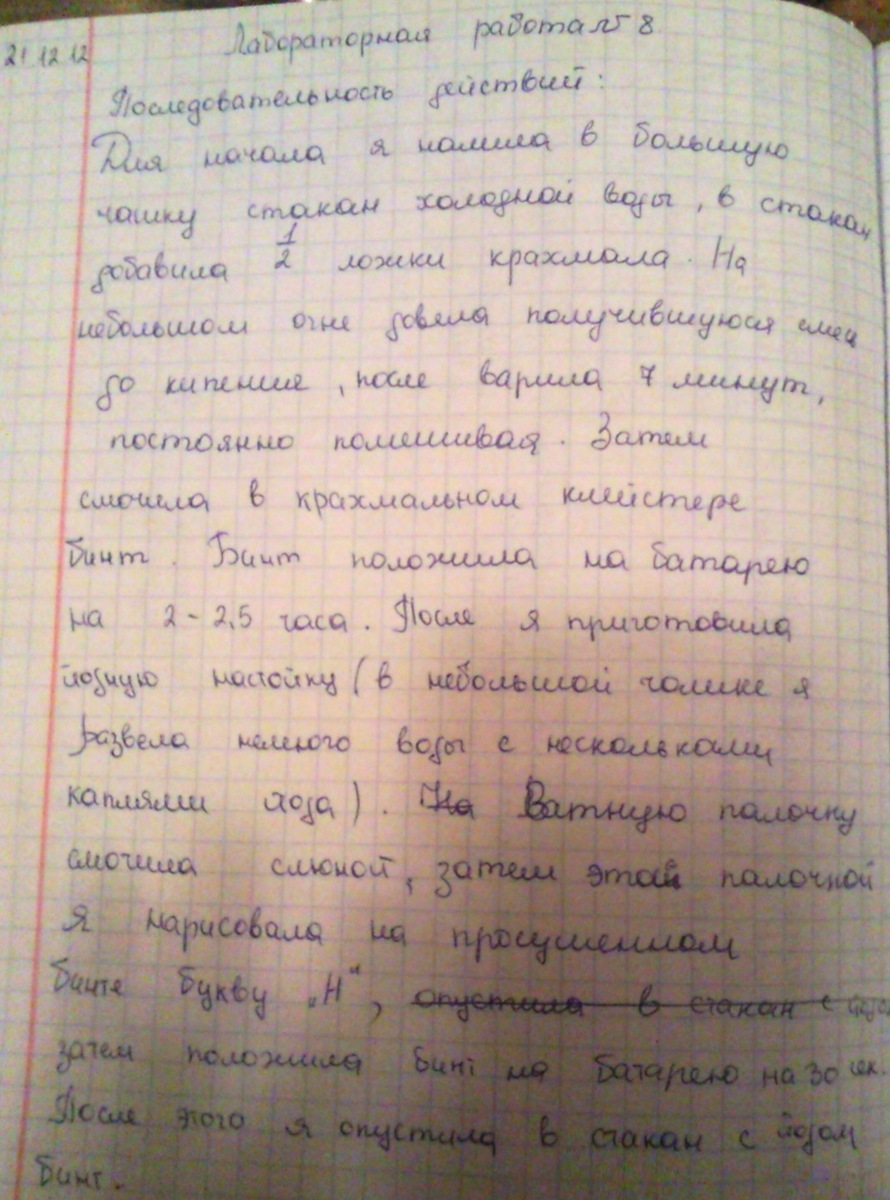 21.12.12 Лабораторная работа № 8
Последовательность действий:
Для начала я налила в большую
чашку стакан холодной воды, в стакан
добавила 1/2 ложки крахмала. На
небольшом огне довела получившуюся смесь
до кипение, после варила 7 минут,
постоянно помешивая. Затем
смочила в крахмальном клейстере
бинт. Бинт положила на батарею
на 2-2,5 часа. После я приготовила
йодную настойку (в небольшой чашке я
развела немного воды с несколькими
каплями йода). На Ватную палочку
смочила слюной, затем этой палочкой
я нарисовала на просушенном
бинте букву „Н“, опустила в стакан с йодом
затем положила бинт на батарею на 30 сек.
После этого я опустила в стакан с йодом
бинт.